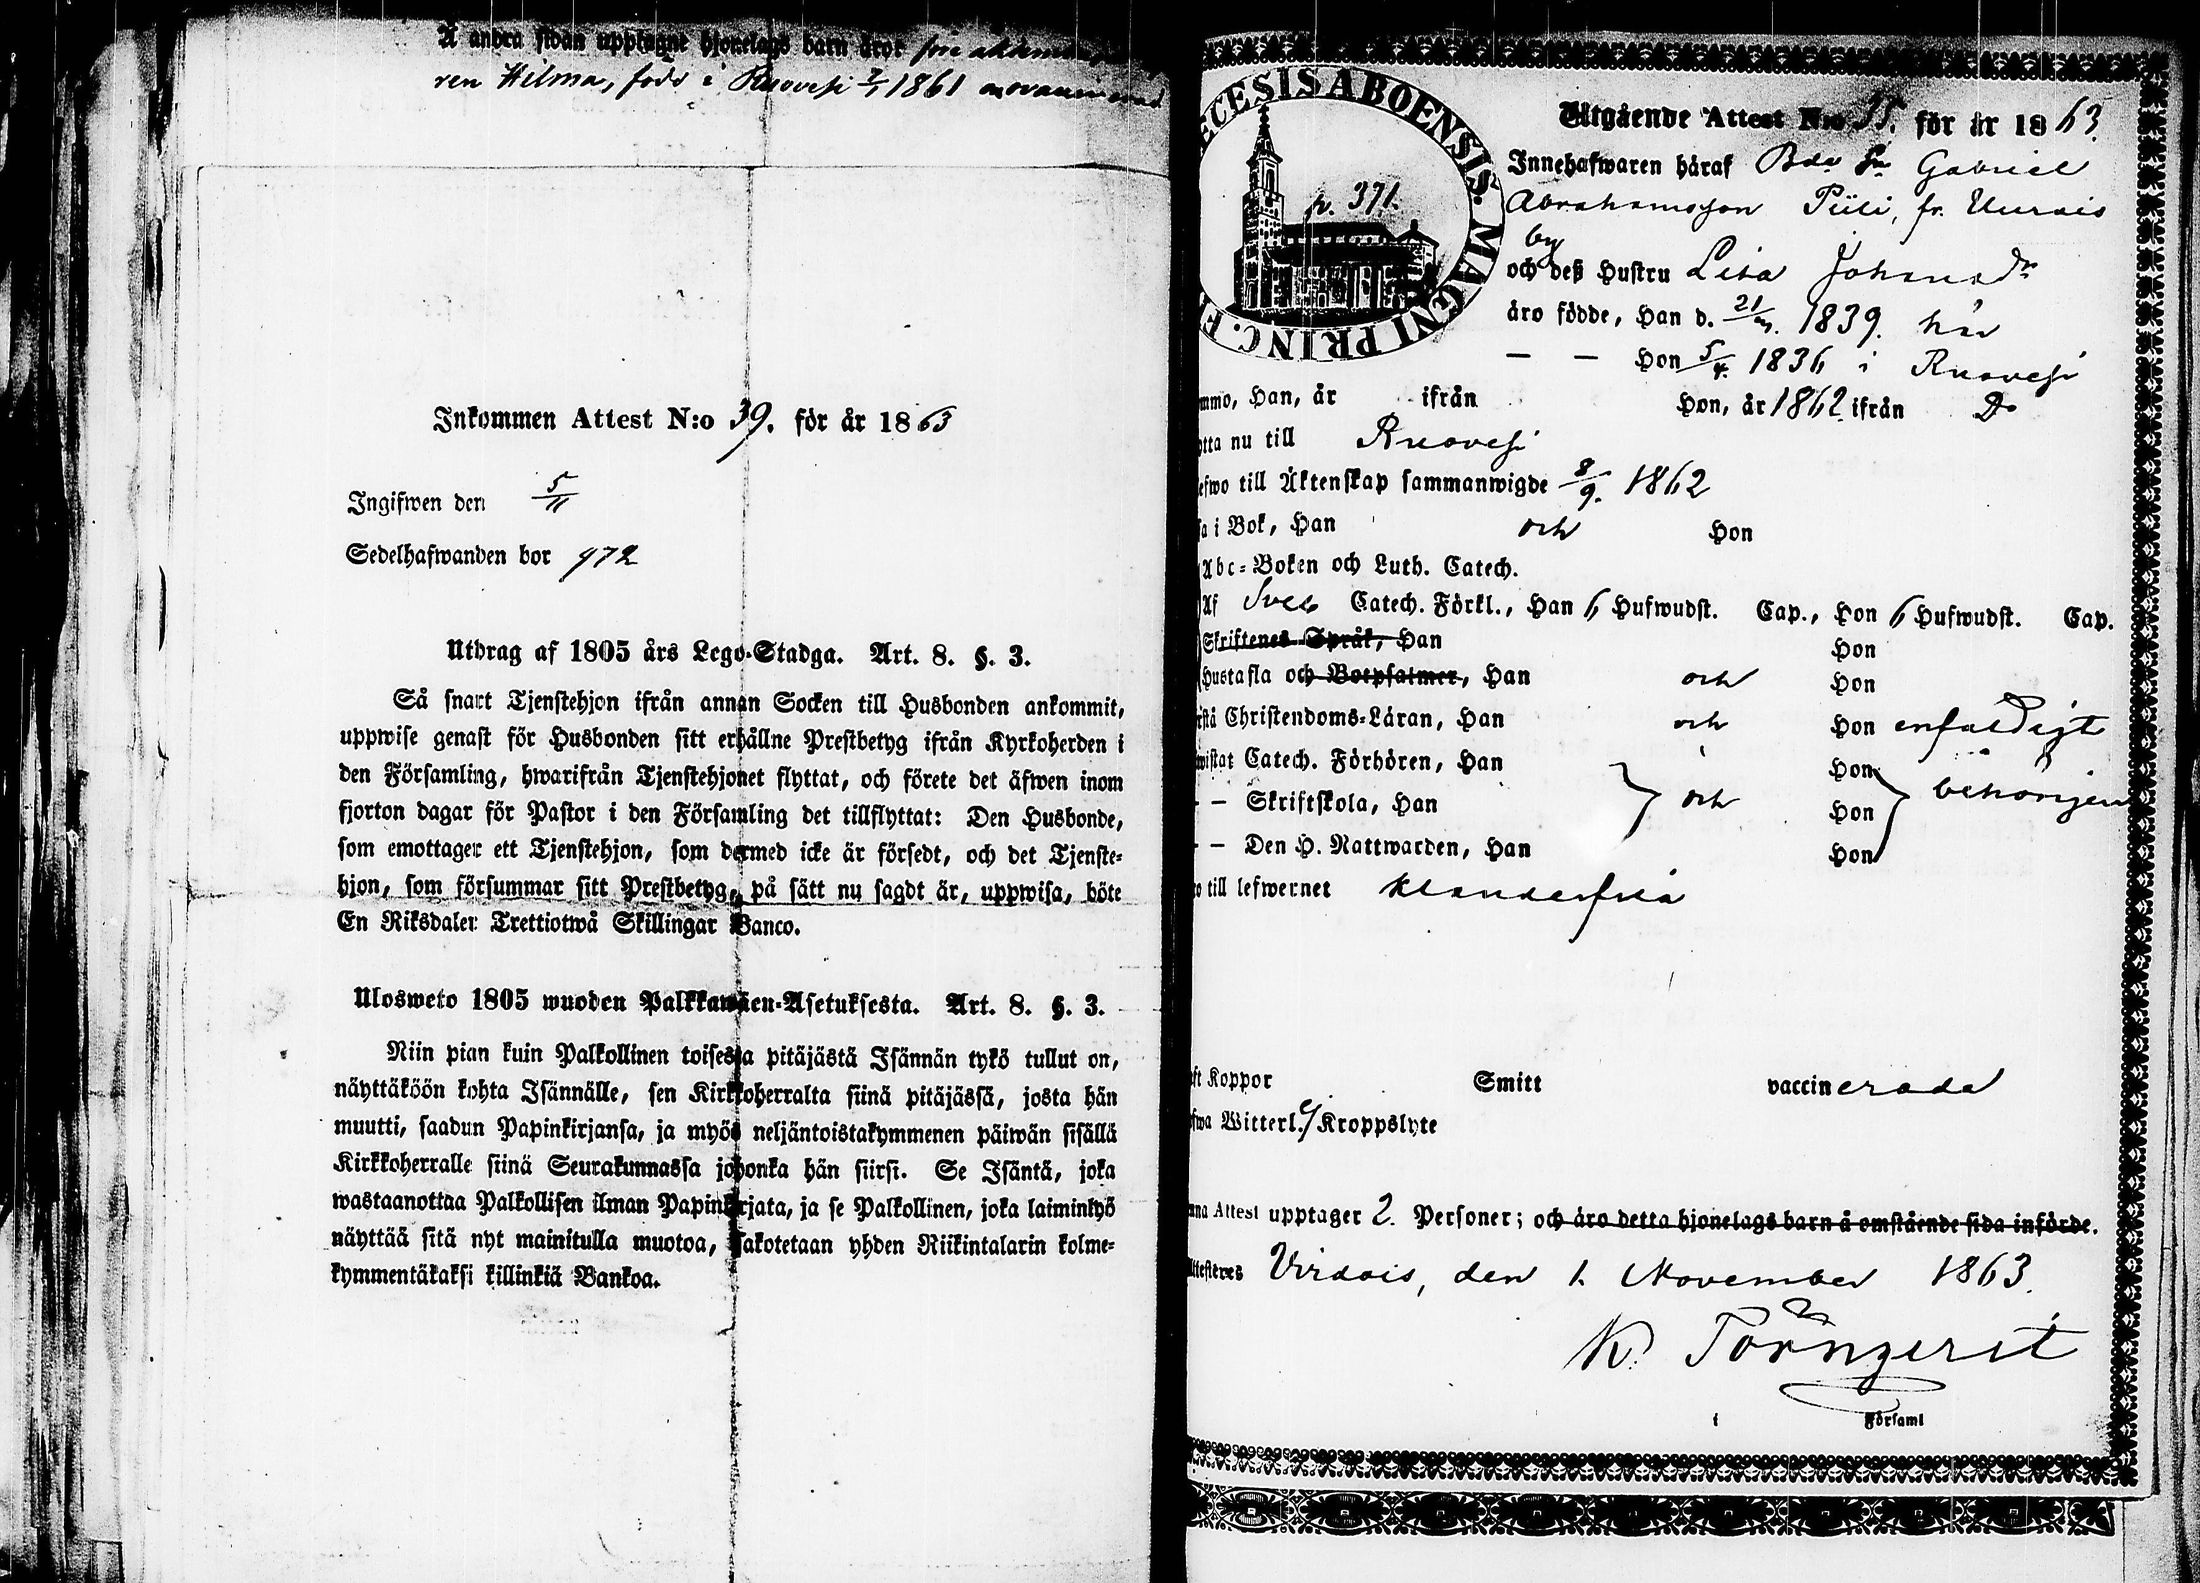 Å andra sidan upptagne hjonelags barn äro:
ren Hilma, född i Ruovesi 2/1 1861
Inkommen Attest N:o 39. för år 1863
Ingifwen den 5/11
Sedelhafwanden bor 972
Utdrag af 1805 års Lego-Stadga. Art. 8. §. 3.
Så snart Tjenstehjon ifrån annan Socken till Husbonden ankommit,
uppwise genast för Husbonden sitt erhållne Prestbetyg ifrån Kyrkoherden i
den Församling, hwarifrån Tjenstehjonet flyttat, och förete det äfwen inom
fjorton dagar för Pastor i den Församling det tillflyttat: Den Husbonde,
som emottager ett Tjenstehjon, som dermed icke är försedt, och det Tjenste-
hjon, som försummar sitt Prestbetyg, på sätt nu sagdt är, uppwisa, böte
En Riksdaler Trettiotwå Skillingar Banco.
Ulosweto 1805 wuoden Palkkawäen-Asetuksesta. Art. 8. §. 3.
Niin pian kuin Palkollinen toisesta pitäjästä Isännän tykö tullut on,
näyttäköön kohta Isännälle, sen Kirkkoherralta siinä pitäjässä, josta hän
muutti, saadun Papinkirjansa, ja myös neljäntoistakymmenen päiwän sisällä
Kirkkoherralle siinä Seurakunnassa johonka hän siirsi. Se Isäntä, joka
wastaanottaa Palkollisen ilman Papinkirjata, ja se Palkollinen, joka laiminlyö
näyttää sitä nyt mainitulla muotoa, sakotetaan yhden Riikintalarin kolme-
kymmentäkaksi killinkiä Bankoa.
ECESIS ABOENSIS. MAGNI PRINC. F
p. 371.
Utgående Attest N:o 35. för år 1863.
Innehafwaren häraf Bde Sn Gabriel
Abrahamsson Piili, fr. Uurais
by
och deß Hustru Lisa Johansdr
äro födde, Han d. 21/ 1839. här
— — Hon 5/4. 1836 i Ruovesi
mmo, Han, år ifrån Hon, år 1862 ifrån Do
otta nu till Ruovesi
efwo till Äktenskap sammanwigde 8/9. 1862
sa i Bok, Han och Hon
Abc-Boken och Luth. Catech.
Af Sveb Catech. Förkl., Han 6 Hufwudst. Cap., Hon 6 Hufwudst. Cap.
Skriftenes Språk, Han Hon
Hustafla och Botpsalmer, Han och Hon
rstå Christendoms-Läran, Han och Hon enfaldigt
wistat Catech. Förhören, Han Hon
— — Skriftskola, Han och Hon behörigen
— — Den H. Nattwarden, Han Hon
o till lefwernet klanderfria
ft Koppor Smitt vaccinerade
fwa Witterl. ej Kroppslyte
nna Attest upptager 2. Personer; och äro detta hjonelags barn å omstående sida införde.
Attesteres Virdois, den 1. November 1863.
K. Törnqerit
i Församl